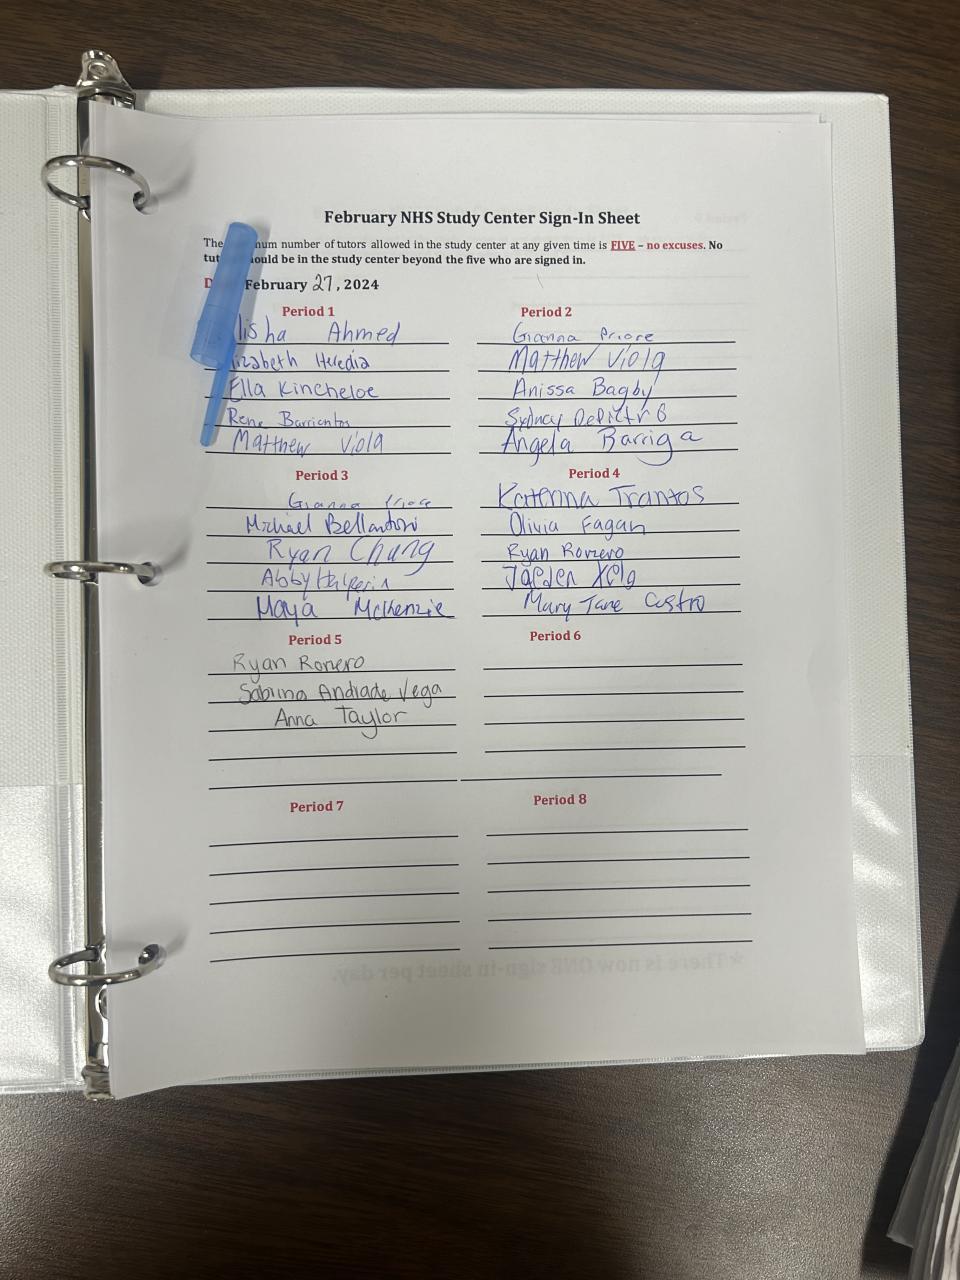 February NHS Study Center Sign-In Sheet
The num number of tutors allowed in the study center at any given time is FIVE – no excuses. No
tut ould be in the study center beyond the five who are signed in.
D February 27, 2024
Period 1
lisha Ahmed
lizabeth Heredia
Ella Kincheloe
Rene Barrientos
Matthew Viola
Period 2
Gianna Priore
Matthew Viola
Anissa Bagby
Sydney
Angela Barriga
Period 3
Gianna Priore
Michael Bellantoni
Ryan Chung
Abby Halperin
Maya McKenzie
Period 4
Katerina Trantos
Olivia Fagan
Ryan Romero
Jaeden
Mary Jane Castro
Period 5
Ryan Romero
Sabrina Andrade Vega
Anna Taylor
Period 6
Period 7
Period 8
★There is now ONE sign-in sheet per day.